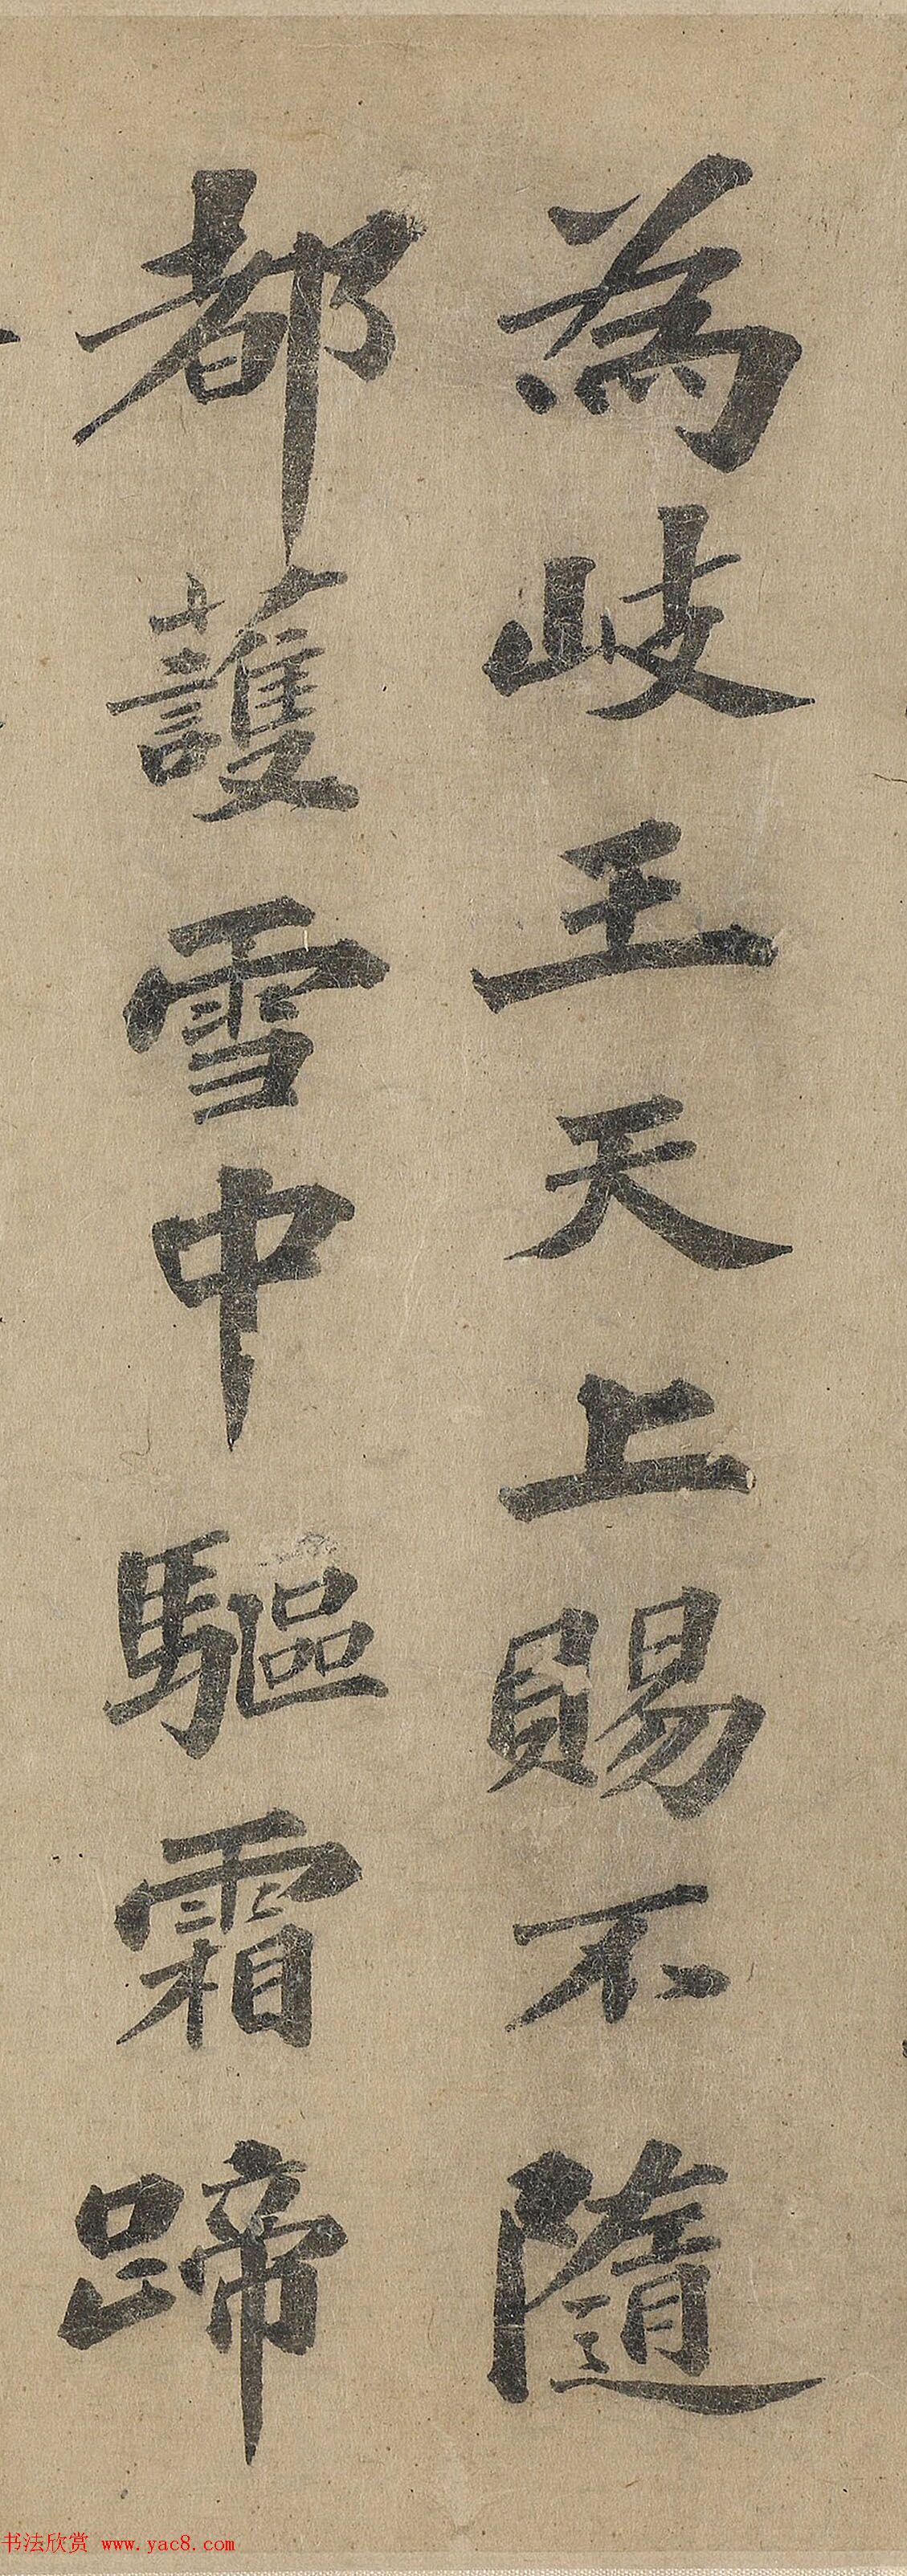 為岐王天上賜不隨
都護雪中驅霜蹄
书法欣赏 www.yac8.com